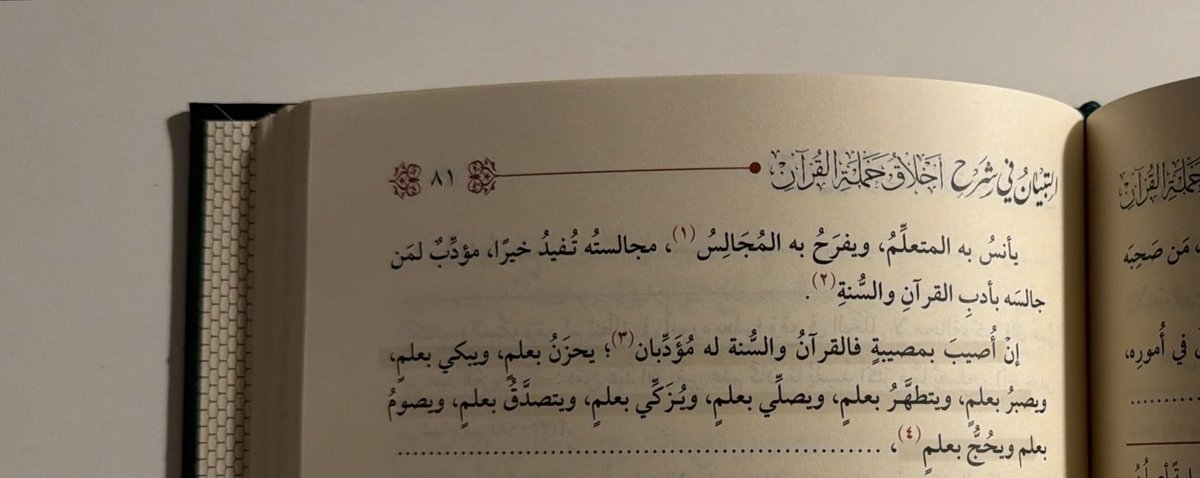 التبيان في شرح أخلاق حملة القرآن ٨١
يأنسُ به المتعلِّمُ، ويفرَحُ به المُجَالِسُ(١)، مجالستُه تُفيدُ خيرًا، مؤدِّبٌ لمَن
جالسَه بأدبِ القرآنِ والسُّنةِ(٢).
إنْ أُصيبَ بمصيبةٍ فالقرآنُ والسُّنة له مُؤَدِّبان(٣)؛ يحزَنُ بعلمٍ، ويبكي بعلمٍ،
ويصبرُ بعلمٍ، ويتطهَّرُ بعلمٍ، ويصلِّي بعلمٍ، ويُزَكِّي بعلمٍ، ويتصدَّقُ بعلمٍ، ويصومُ
بعلم ويحُجُّ بعلمٍ(٤)، ..................................................
حملة القرآن
، مَن صَحِبَه
في أُمورِه،